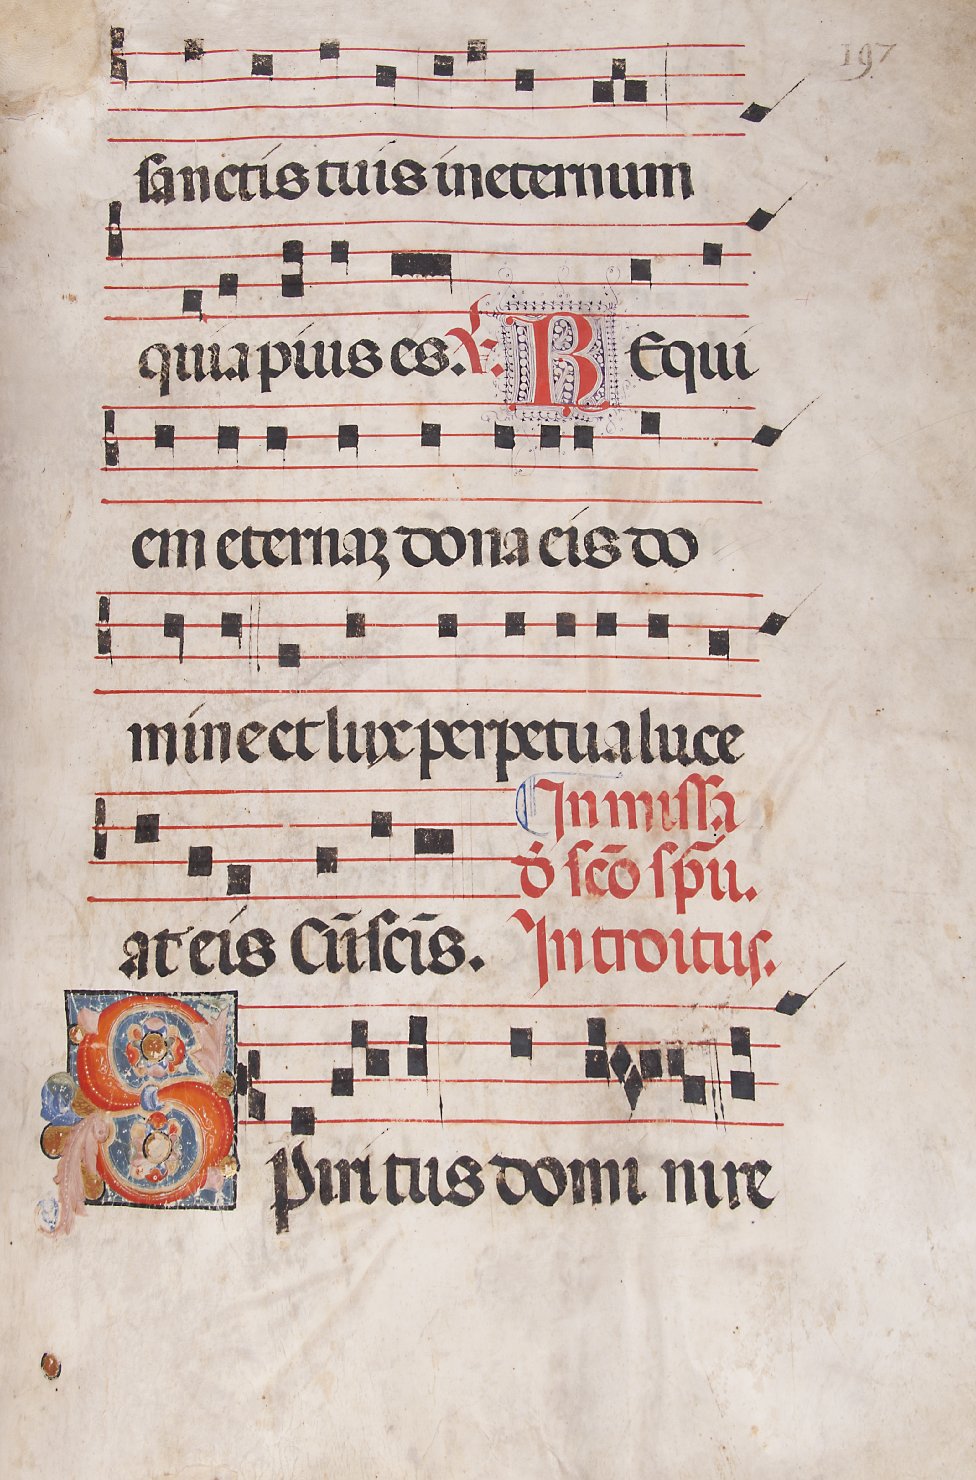 197
sanctis tuis in eternum
quia pius es. ℟. REqui
em eternaꝫ dona eis do
mine et lux perpetua luce
In missa
at eis Cū scīs. đ scō spū.
Introitus.
SPiritus domi ni re